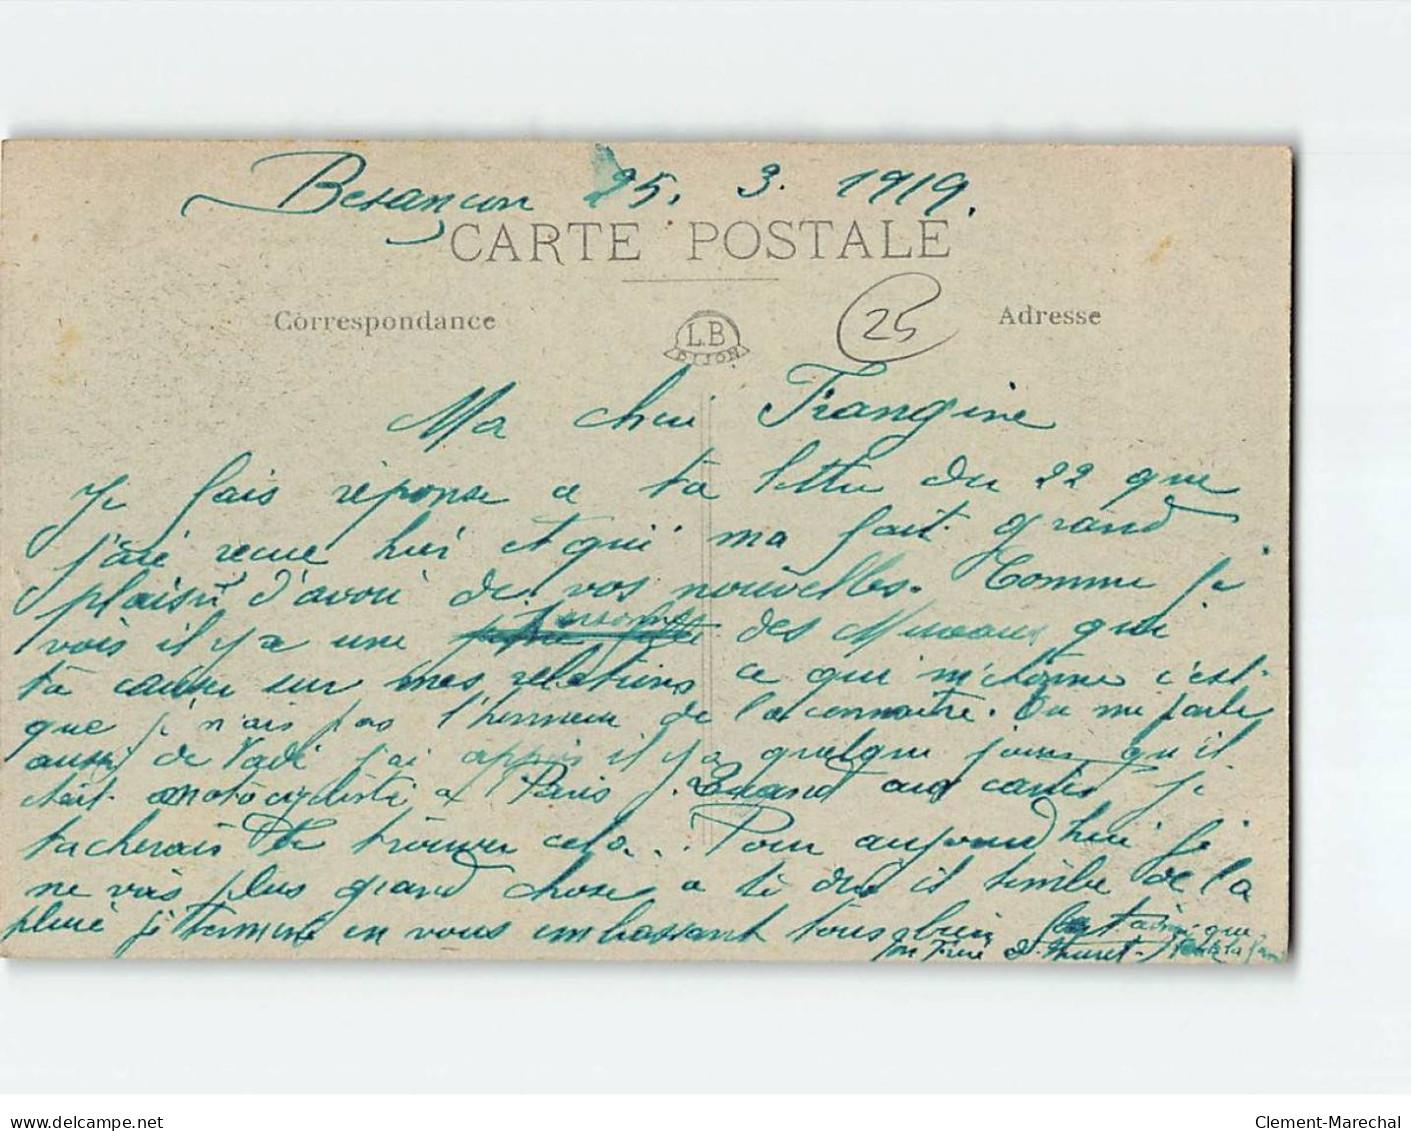 Besançon 25. 3. 1919.
CARTE POSTALE
Correspondance
L.B
DIJON
25
Adresse
Ma cher Frangine
Je fais réponse a ta lettre du 22 que
j'aie recue hier et qui ma fait grand
plaisir d'avoir de vos nouvelles. Comme je
vois il y a une personne des qui
ta causer sur mes relations ce qui m'étonne c'est
que je n'ais pas l'honneur de la connaitre. Tu me parle
aussi de j'ai appris il y a quelque jours qu'il
était motocycliste a Paris. Quand aux cartes je
tacherais de trouver cela. Pour aujourd'hui je
ne vois plus grand chose a te dire il tombe de la
pluie je termine en vous embrassant tous bien fort ainsi que
toute la
ton Frère
delcampe.net
Clement-Marechal